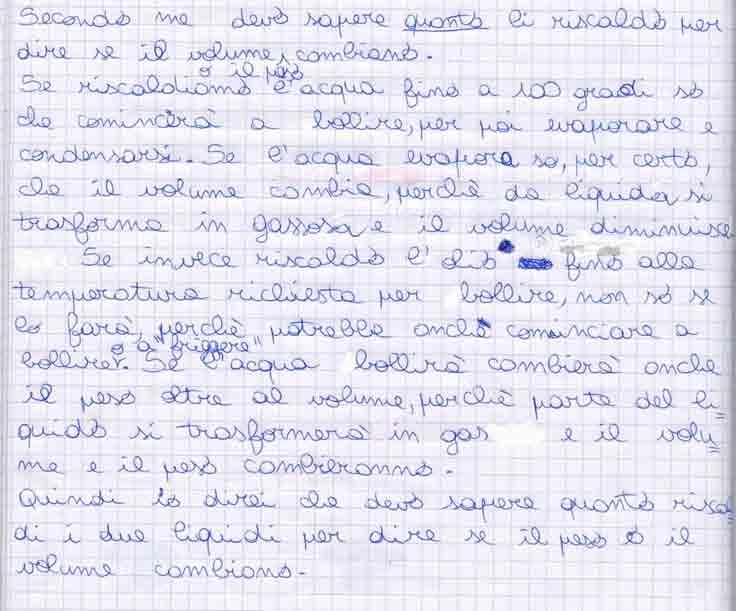 Secondo me devo sapere quanto li riscaldo per
dire se il volume o il peso cambiano.
Se riscaldiamo l'acqua fino a 100 gradi so
che comincerà a bollire, per poi evaporare e
condensarsi. Se l'acqua evapora so, per certo,
che il volume cambia, perchè da liquida si
trasforma in gassosa e il volume diminuisce
Se invece riscaldo l'olio fino alla
temperatura richiesta per bollire, non so se
lo farà, perchè potrebbe anche cominciare a
bollire o a "friggere". Se l'acqua bollirà cambierà anche
il peso oltre al volume, perchè parte del li=
quido si trasformerà in gas e il volu=
me e il peso cambieranno.
Quindi io direi che devo sapere quanto riscal=
di i due liquidi per dire se il peso o il
volume cambiano.